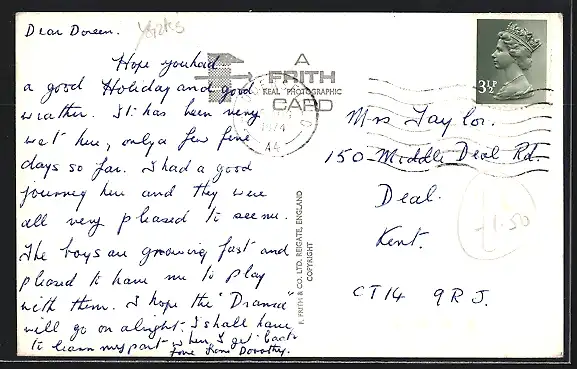 Dear Doreen.
Hope you had
a good Holiday and good
weather. It has been very
wet here, only a few fine
days so far. I had a good
journey here and they were
all very pleased to see me.
The boys are growing fast and
pleased to have me to play
with them. I hope the "Drama"
will go on alright. I shall have
to learn my part when I get back
Love from Dorothy.
A
FRITH
REAL PHOTOGRAPHIC
CARD
1974
44
F. FRITH & CO. LTD. REIGATE, ENGLAND
COPYRIGHT
3½P
Mrs Taylor.
150 Middle Deal Rd.
Deal.
Kent.
CT14 9RJ.
1.50